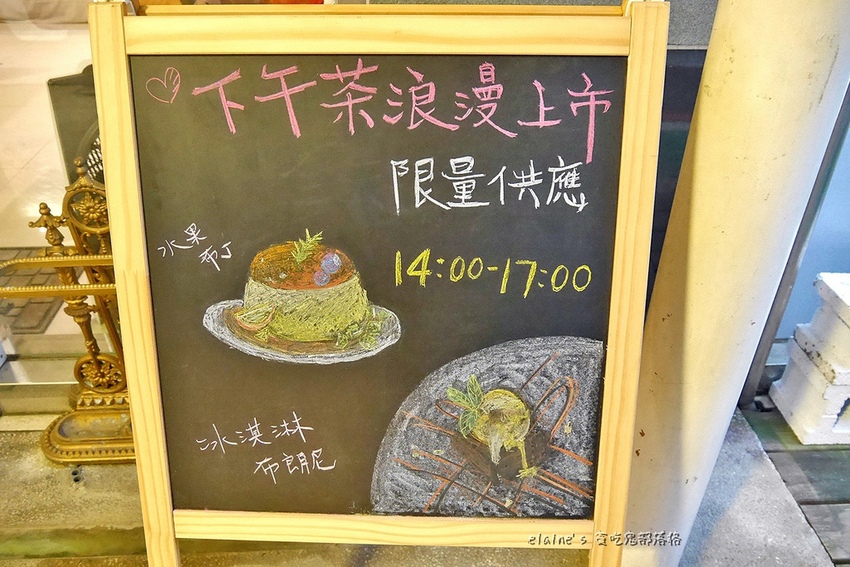 下午茶浪漫上市
限量供應
14:00-17:00
水果
布丁
冰淇淋
布朗尼
elaine's 貪吃鬼部落格